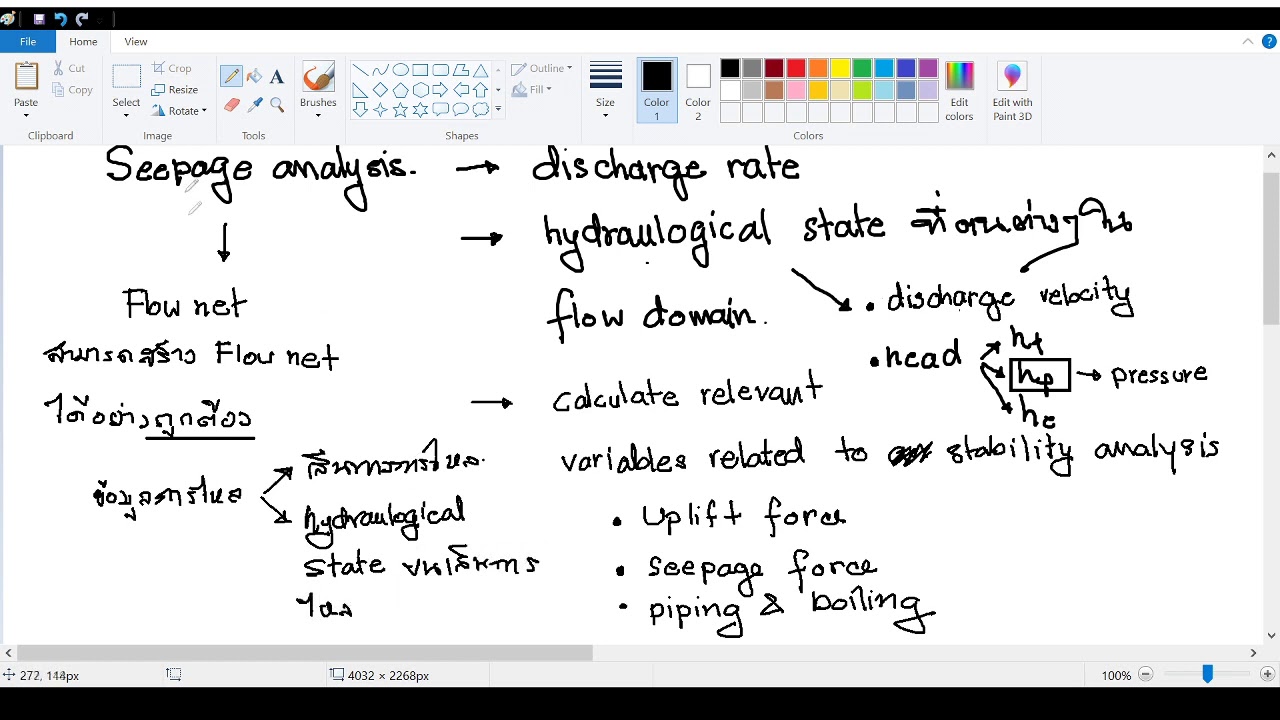 File
Home
View
Paste
Cut
Copy
Clipboard
Select
Crop
Resize
Rotate
Image
Tools
Brushes
Shapes
Outline
Fill
Size
Color 1
Color 2
Colors
Edit colors
Edit with Paint 3D
Seepage analysis. → discharge rate
→ hydraulogical state ที่ตำแหน่งต่างๆ ใน
flow domain.
• discharge velocity
• head
ht
hp → pressure
he
→ calculate relevant
variables related to stability analysis
• Uplift force
• seepage force
• piping & boiling
↓
Flow net
สามารถสร้าง Flow net
ได้อย่างถูกต้อง
ข้อมูลการไหล
เส้นทางการไหล
hydraulogical
state บนเส้นการ
ไหล
272, 144px
4032 × 2268px
100%